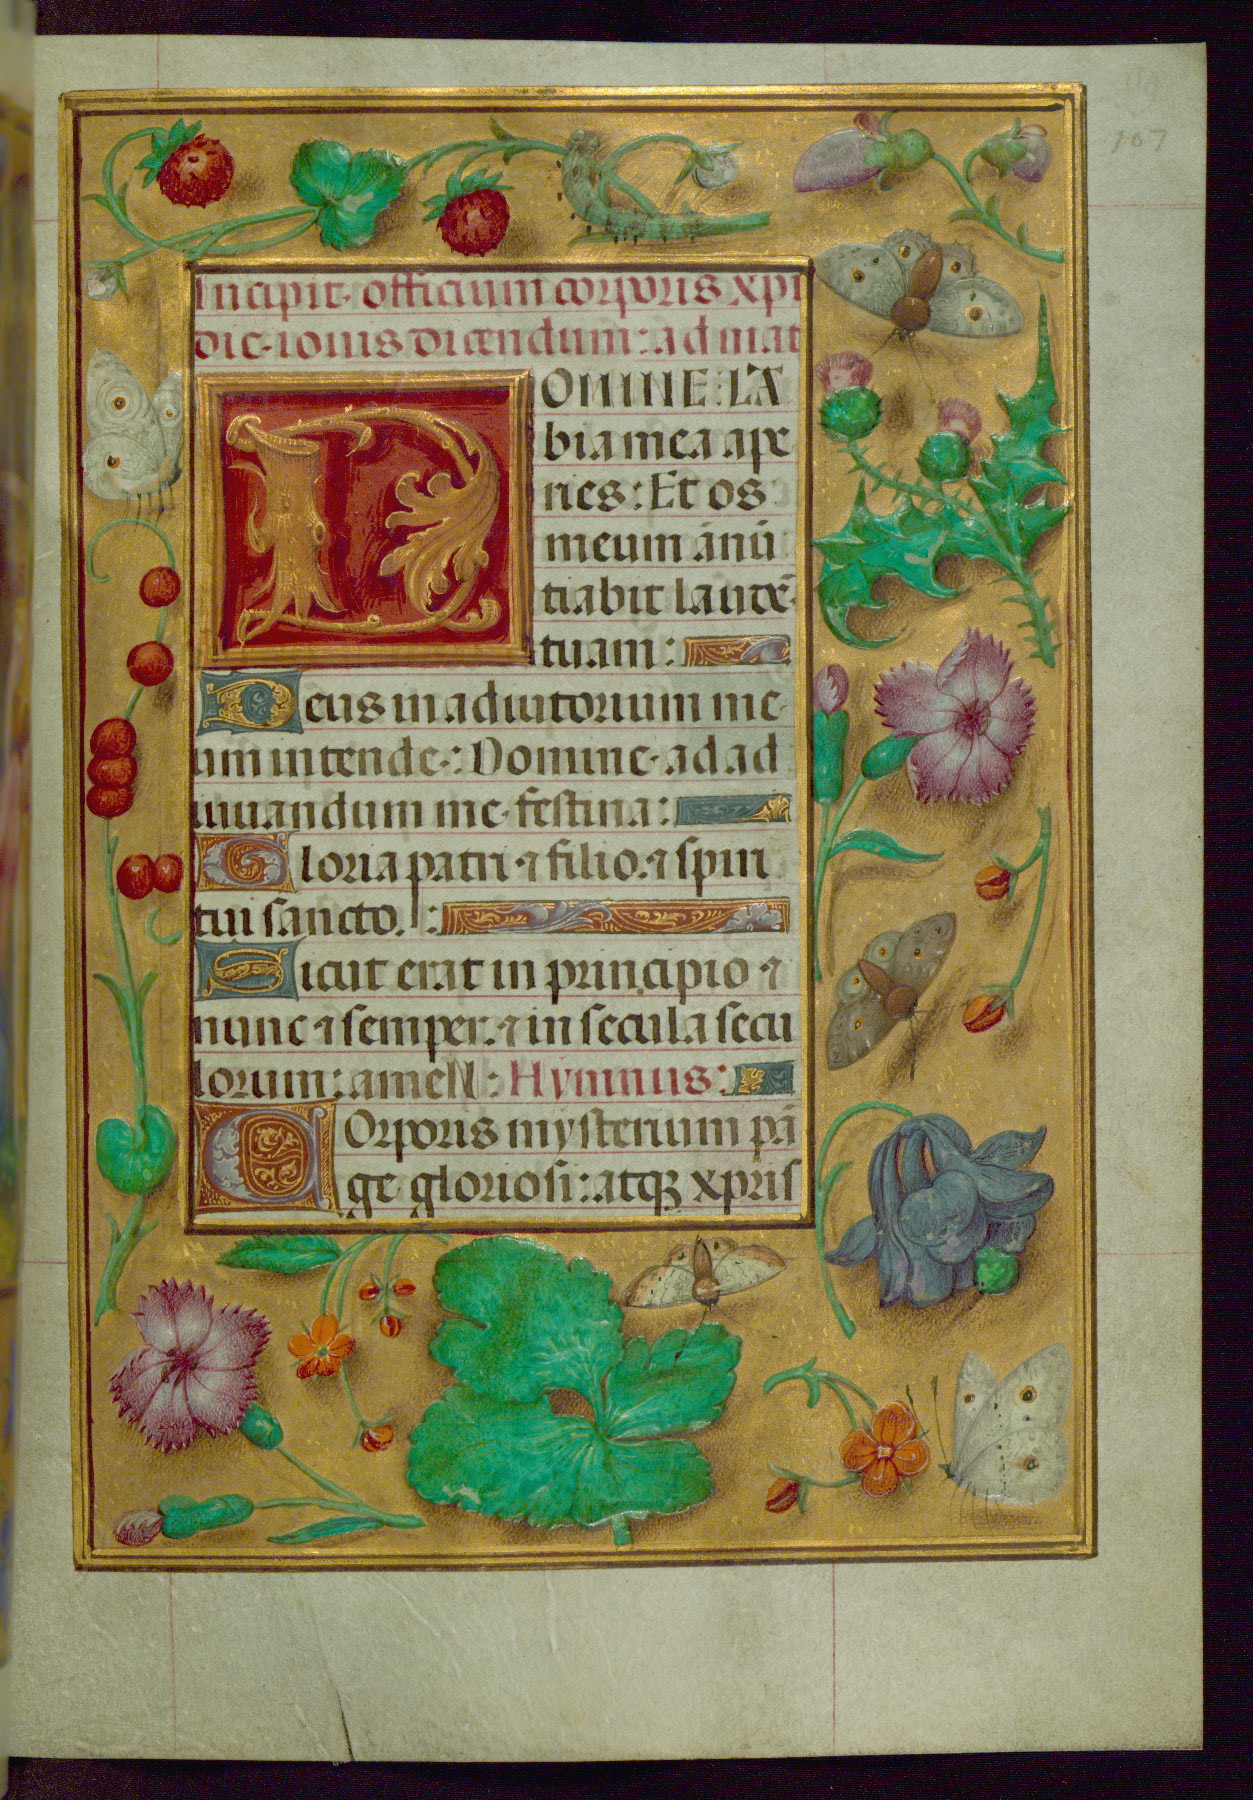 107
Incipit officium corporis xpi
die iouis dicendum: ad mat
DOMINE LA
bia mea ape
ries: Et os
meum ānū
tiabit laudē
tuam:
Deus in adiutorium me
um intende: Domine ad ad
iuuandum me festina:
Gloria patri ⁊ filio. ⁊ spiri
tui sancto.
Sicut erat in principio ⁊
nunc ⁊ semper. ⁊ in secula secu
lorum: ameN: Hymnus:
COrporis mysterium pā
ge gloriosi: atqꝫ xpris